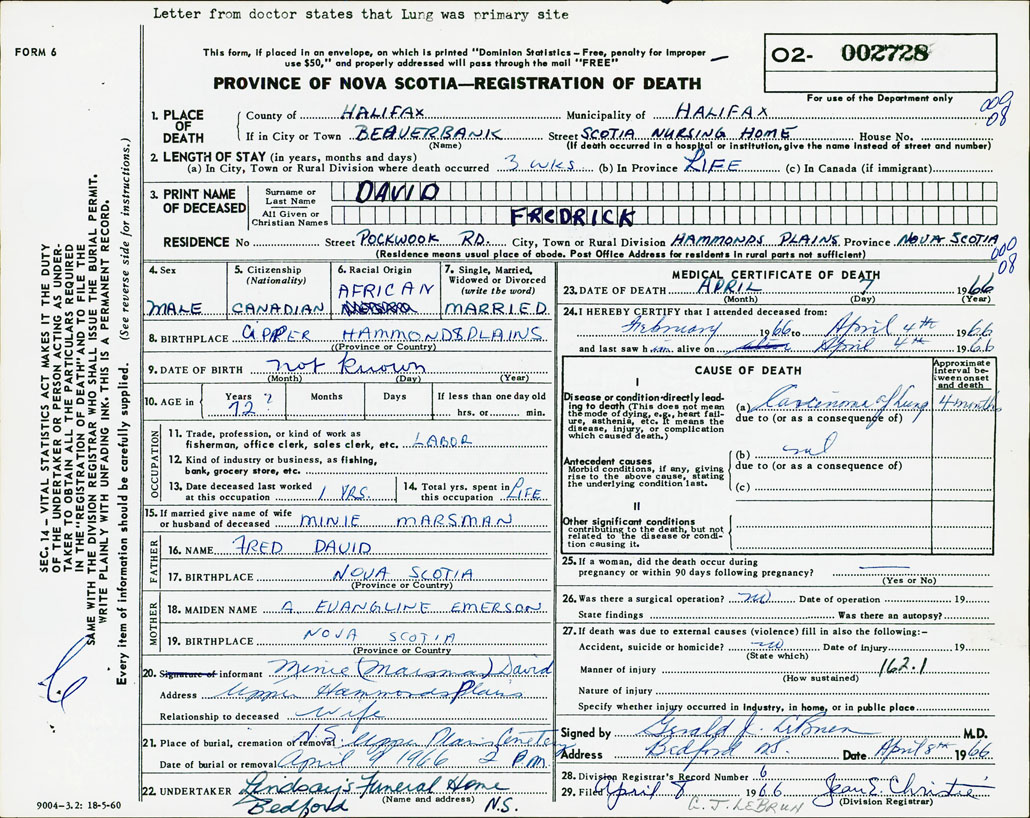 Letter from doctor states that Lung was primary site
FORM 6
This form, if placed in an envelope, on which is printed "Dominion Statistics – Free, penalty for improper
use $50," and properly addressed will pass through the mail "FREE"
PROVINCE OF NOVA SCOTIA—REGISTRATION OF DEATH
02- 002728
For use of the Department only
SEC. 14 – VITAL STATISTICS ACT MAKES IT THE DUTY
OF THE UNDERTAKER OR PERSON ACTING AS UNDER-
TAKER TO OBTAIN ALL THE PARTICULARS REQUIRED
IN THE "REGISTRATION OF DEATH" AND TO FILE THE
SAME WITH THE DIVISION REGISTRAR WHO SHALL ISSUE THE BURIAL PERMIT.
WRITE PLAINLY WITH UNFADING INK. THIS IS A PERMANENT RECORD.
Every item of information should be carefully supplied. (See reverse side for instructions.)
1. PLACE OF DEATH
County of HALIFAX Municipality of HALIFAX
If in City or Town BEAVERBANK Street SCOTIA NURSING HOME House No.
(Name) (If death occurred in a hospital or institution, give the name instead of street and number)
009
08
2. LENGTH OF STAY (in years, months and days)
(a) In City, Town or Rural Division where death occurred 3 WKS (b) In Province LIFE (c) In Canada (if immigrant)
3. PRINT NAME OF DECEASED
Surname or Last Name DAVID
All Given or Christian Names FREDRICK
RESIDENCE No Street POCKWOOK RD. City, Town or Rural Division HAMMONDS PLAINS Province NOVA SCOTIA
(Residence means usual place of abode. Post Office Address for residents in rural parts not sufficient)
000
08
4. Sex MALE
5. Citizenship (Nationality) CANADIAN
6. Racial Origin AFRICAN
7. Single, Married, Widowed or Divorced (write the word) MARRIED
8. BIRTHPLACE UPPER HAMMONDSPLAINS
(Province or Country)
9. DATE OF BIRTH not known
(Month) (Day) (Year)
10. AGE in Years 72? Months Days If less than one day old hrs. or min.
OCCUPATION
11. Trade, profession, or kind of work as
fisherman, office clerk, sales clerk, etc. LABOR
12. Kind of industry or business, as fishing,
bank, grocery store, etc.
13. Date deceased last worked at this occupation 1 YRS.
14. Total yrs. spent in this occupation LIFE
15. If married give name of wife
or husband of deceased MINIE MARSMAN
FATHER
16. NAME FRED DAVID
17. BIRTHPLACE NOVA SCOTIA
(Province or Country)
MOTHER
18. MAIDEN NAME A. EVANGLINE EMERSON
19. BIRTHPLACE NOVA SCOTIA
(Province or Country)
20. Signature of informant Minie (Marsman) David
Address Upper Hammonds Plains
Relationship to deceased Wife
21. Place of burial, cremation or removal N.S. Upper Plains Cemetery
Date of burial or removal April 9 1966 2 P.M.
22. UNDERTAKER Lindsay's Funeral Home
(Name and address)
Bedford N.S.
9004-3.2: 18-5-60
MEDICAL CERTIFICATE OF DEATH
23. DATE OF DEATH APRIL 7 1966
(Month) (Day) (Year)
24. I HEREBY CERTIFY that I attended deceased from:
February 1966 to April 4th 1966
and last saw him alive on April 4th 1966
CAUSE OF DEATH
Approximate interval between onset and death
I
Disease or condition directly lead-
ing to death (This does not mean
the mode of dying, e.g., heart fail-
ure, asthenia, etc. It means the
disease, injury, or complication
which caused death.)
(a) Carcinoma of Lung 4 months
due to (or as a consequence of)
Antecedent causes
Morbid conditions, if any, giving
rise to the above cause, stating
the underlying condition last.
(b) nil
due to (or as a consequence of)
(c)
II
Other significant conditions
contributing to the death, but not
related to the disease or condi-
tion causing it.
25. If a woman, did the death occur during
pregnancy or within 90 days following pregnancy?
(Yes or No)
26. Was there a surgical operation? no Date of operation 19
State findings Was there an autopsy?
27. If death was due to external causes (violence) fill in also the following:–
Accident, suicide or homicide? no Date of injury 19
(State which)
Manner of injury 162.1
(How sustained)
Nature of injury
Specify whether injury occurred in industry, in home, or in public place
Signed by Gerald J. LeBrun M.D.
Address Bedford N.S. Date April 8th 1966
28. Division Registrar's Record Number 6
29. Filed April 8 1966 Jean E. Christie
(Division Registrar)
G. J. LEBRUN